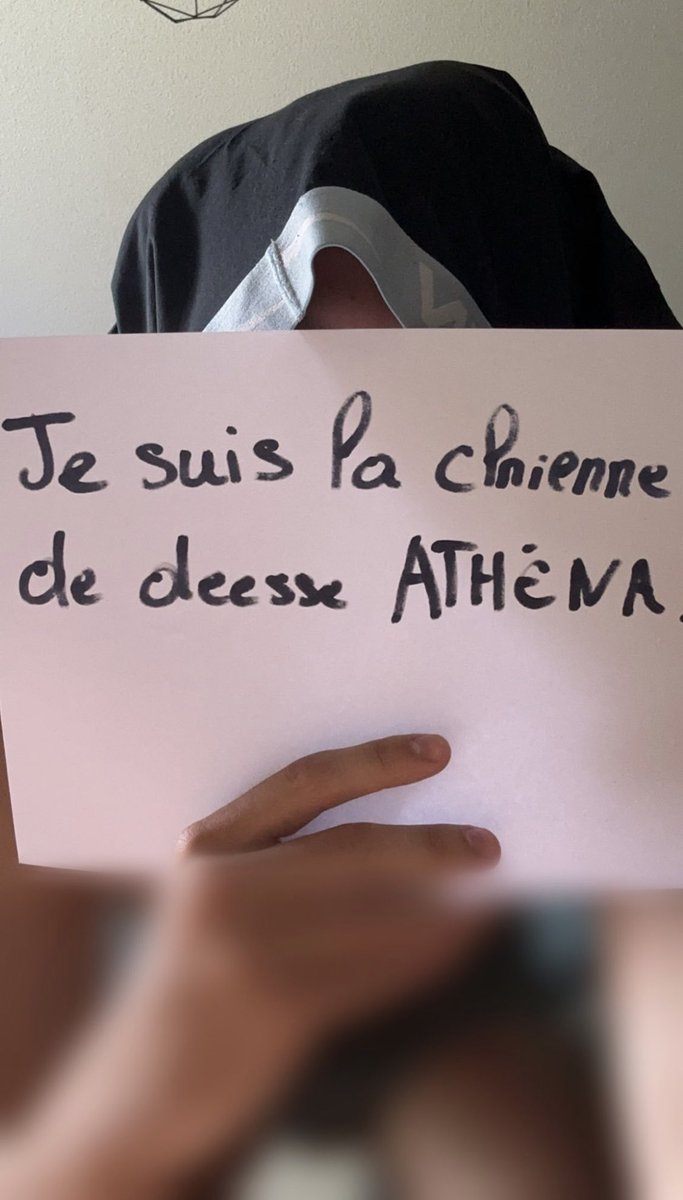 Je suis la chienne
de deesse ATHĖNA.